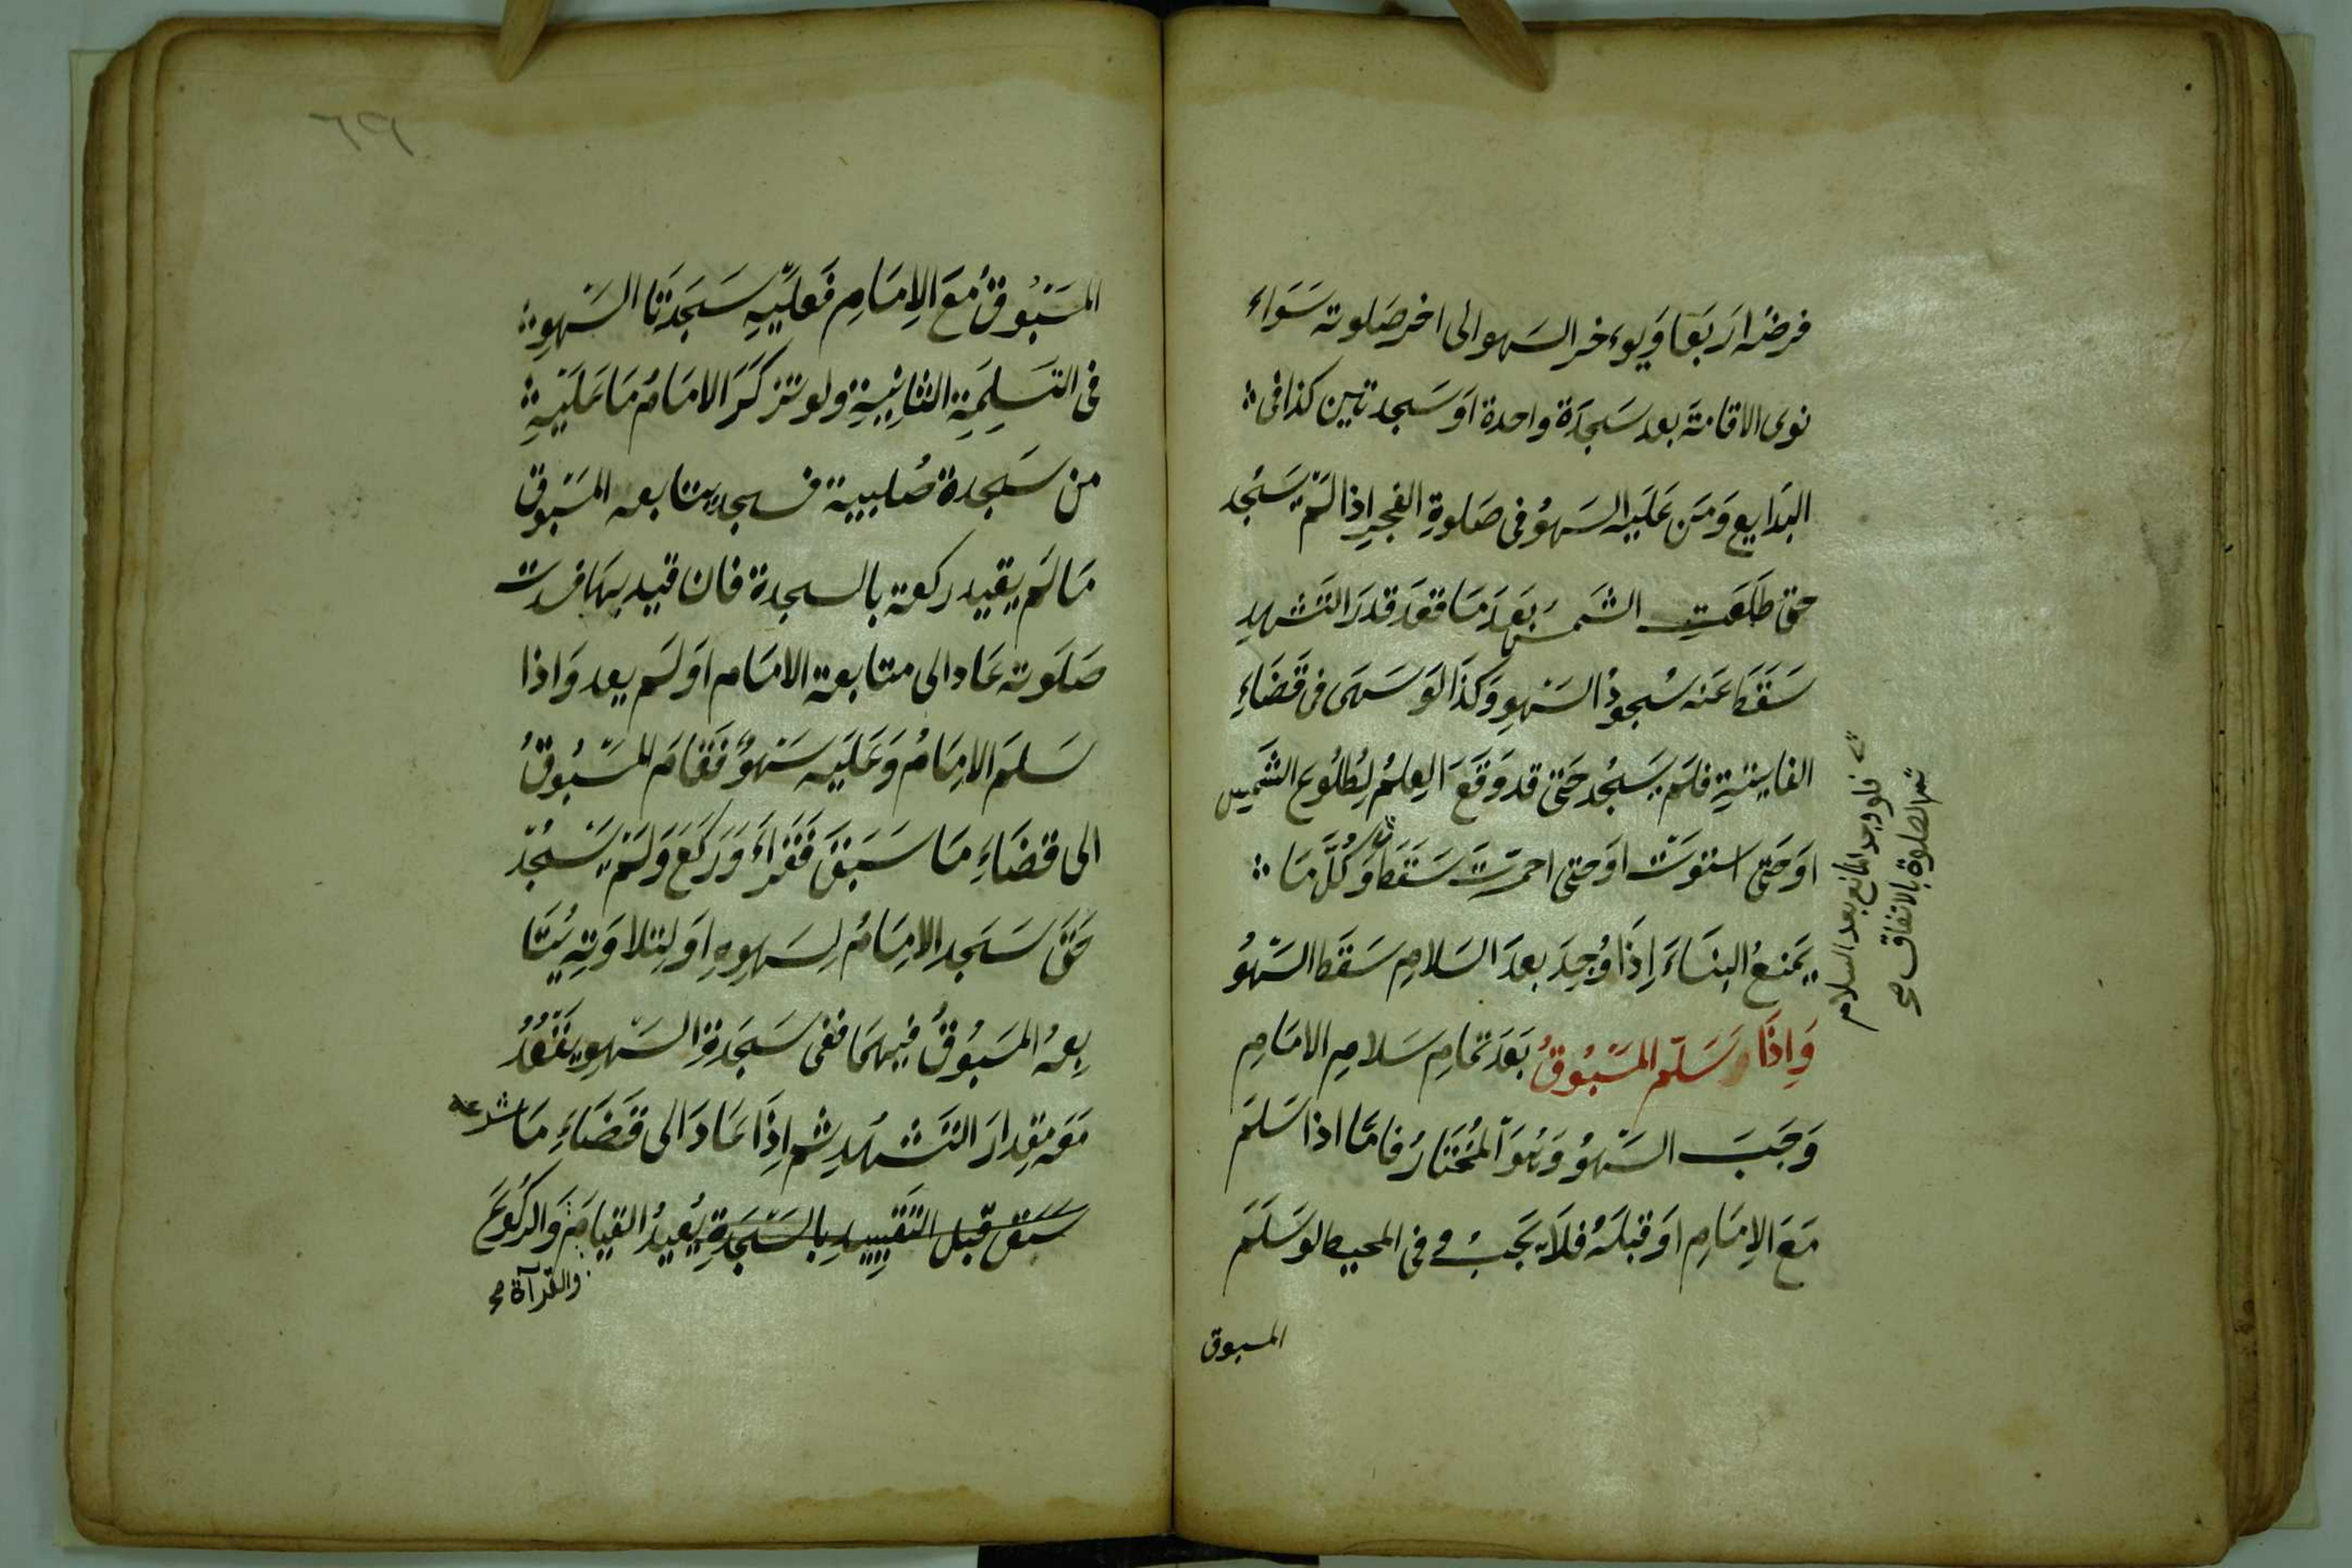 فرضه اربعا ويوءخر السهو الى اخر صلوته سَوَاء
نوى الاقامة بعد سَجدَة واحدة اَو سَجدتين كذا فى
البَدايع وَمَن عَلَيه السَهوُ فى صَلوةِ الفجرِ اذا لَمْ يَسجُد
حتى طلعَتِ الشَمس بَعدَ مَا قعدَ قدرَ التَشهدِ
سَقَطَ عَنه سُجودُ السَهوِ وَكذَا لَو سَهَى فى قَضَاءِ
الفايتةِ فلَم يَسجُد حَتىَ قد وَقَعَ العِلمُ لِطُلوُعِ الشَمس
اَو حَتى استوَت اَو حتى احمرّت سَقَطَ وَكُلُّ مَا
يَمنعُ البنَاءَ اِذَا وُجِدَ بعدَ السَلامِ سَقَط السَهوُ
فلو وجد المانع بعد السلام
تتم الصلوة بالاتفاق صح
وَاِذَا سَلّم المَسْبُوقُ بَعدَ تمامِ سَلامِ الامَامِ
وَجَبَ السَهوُ وَهُوَ المُختَارُ فامّا اذا سَلمَ
مَعَ الاِمَامِ اَو قبلَهُ فلاَ يَجَبُ وفى المحيط لو سَلَمَ
المسبوق
٦٩
المَسْبُوقُ مَعَ الاِمَامِ فَعلَيهِ سَجدَتَا السَهوِ
فى التَسليمَةِ الثانِيَةِ ولو تذكرَ الامَامُ مَا عَلَيهِ
من سَجدة صُلبية فسجد يتابعه المسَبوق
مَا لَم يقيد ركعة بالسجدة فان قيد بهَا فسدت
صَلَوته عَاد الى متابعة الامَام اَو لَم يعد وَاذا
سَلمَ الامَامُ وَعَلَيه سَهوٌ فَقامَ المسَبُوقُ
الى قضَاءِ مَا سَبَقَ فَقَراَءَ وَرَكعَ وَلَمْ يَسْجُدْ
حَتىَ سَجَد الامَامُ لِسَهوِهِ اَو لِتلاوَتِهِ يُتَا
بعهُ المسَبوُقُ فيهمَا ففى سَجَدةِ السَهوِ يَقعُدُ
مَعَه مِقدارَ التَشهُدِ ثم اِذَا عَادَ الى قَضَاءِ مَا شرعه
سَبق قبل التَقييدِ بالسَجَدَةِ يُعيدُ القيامَ وَالركُوعَ
والقرآة صح